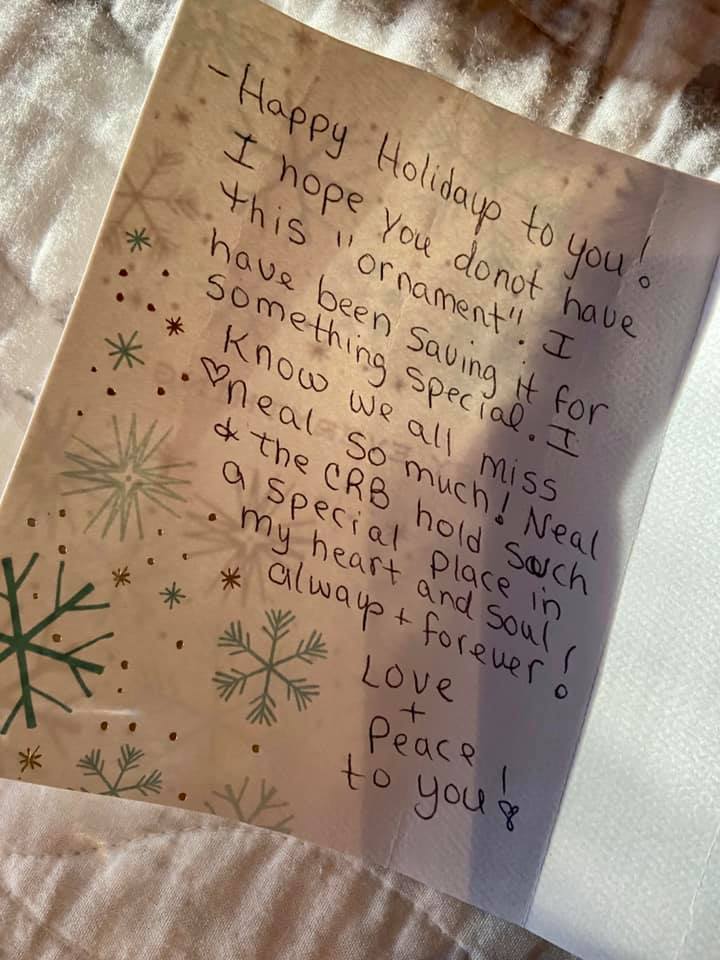 - Happy Holidays to you!
I hope you donot have
this "ornament". I
have been saving it for
something special. I
Know we all miss
♡neal so much! Neal
& the CRB hold such
a special place in
my heart and soul
always + forever!
Love
+
Peace
to you!